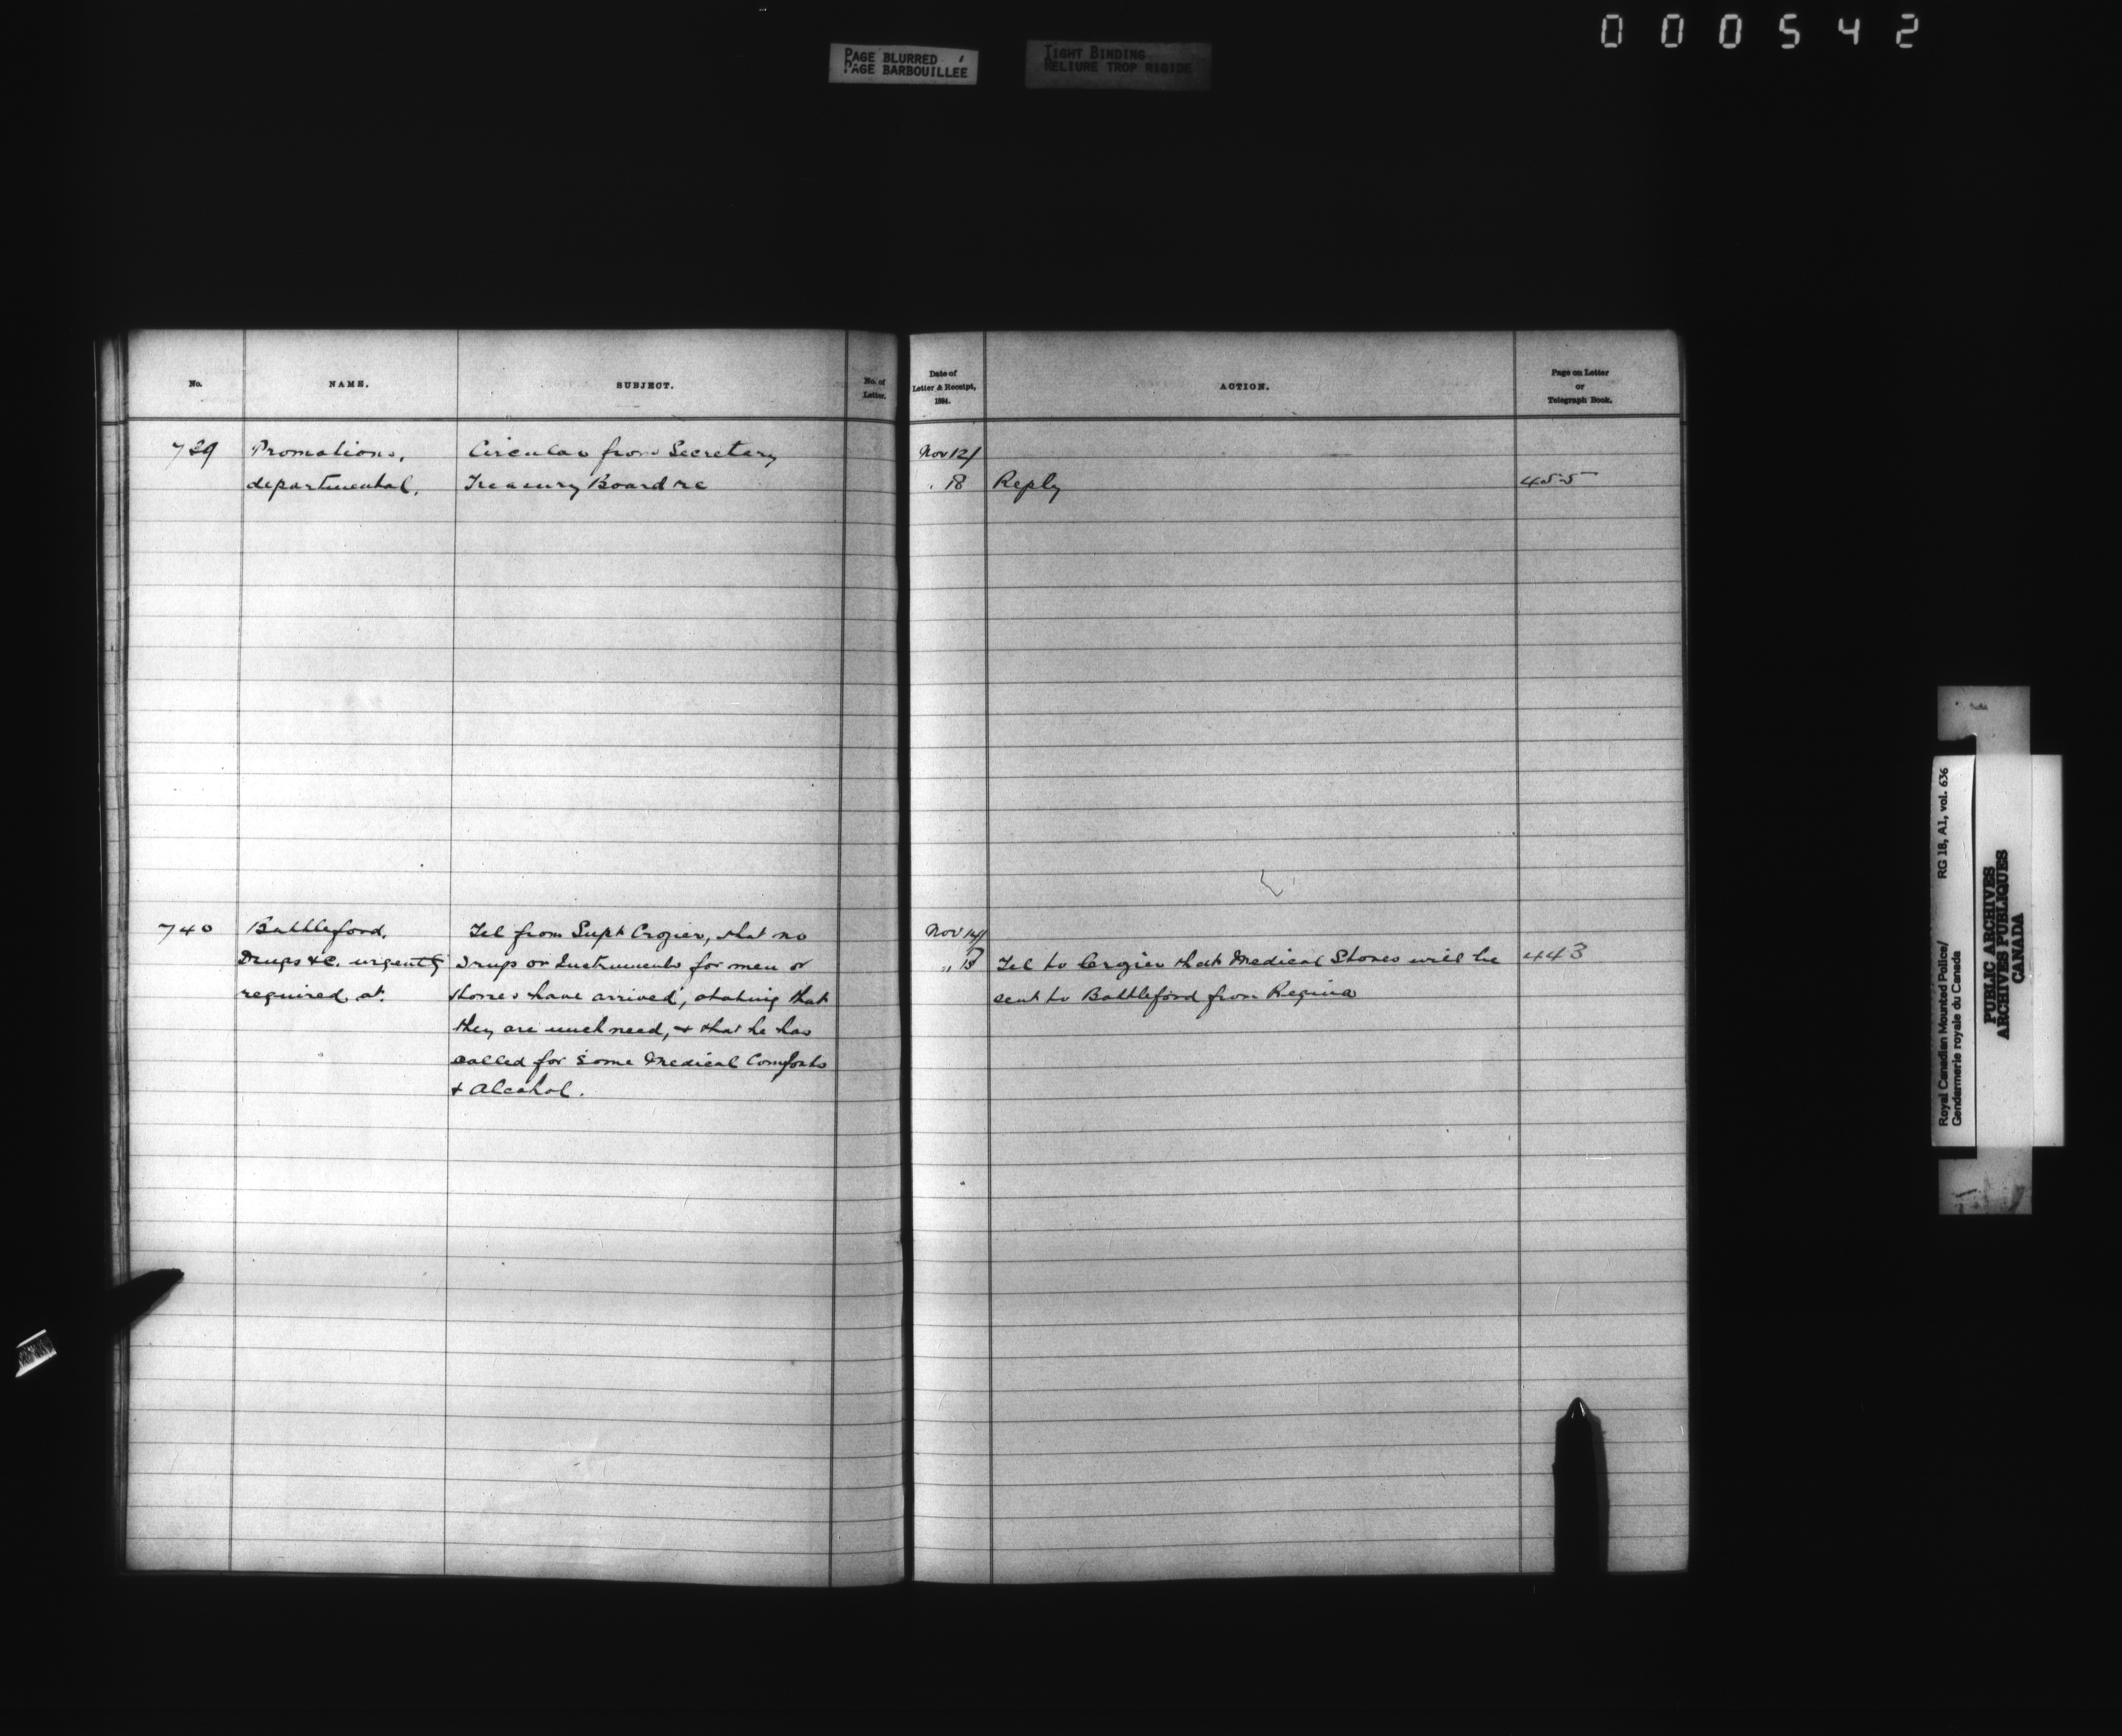 000542
PAGE BLURRED
PAGE BARBOUILLEE
TIGHT BINDING
RELIURE TROP RIGIDE
No. NAME. SUBJECT. No. of Letter.
739 Promotions, Circular from Secretary
departmental. Treasury Board re
740 Battleford. Tel from Supt Crozier, that no
Drugs &c. urgently Drugs or Instruments for men or
required at. horses have arrived, stating that
they are much need, & that he has
called for some Medical Comforts
& Alcohol.
Date of Letter & Receipt, 1884. ACTION. Page on Letter or Telegraph Book.
Nov 12/
" 18 Reply 455
Nov 14/
" Tel to Crozier that Medical Stores will be 443
sent to Battleford from Regina
Royal Canadian Mounted Police/ RG 18, A1, vol. 636
Gendarmerie royale du Canada
PUBLIC ARCHIVES
ARCHIVES PUBLIQUES
CANADA